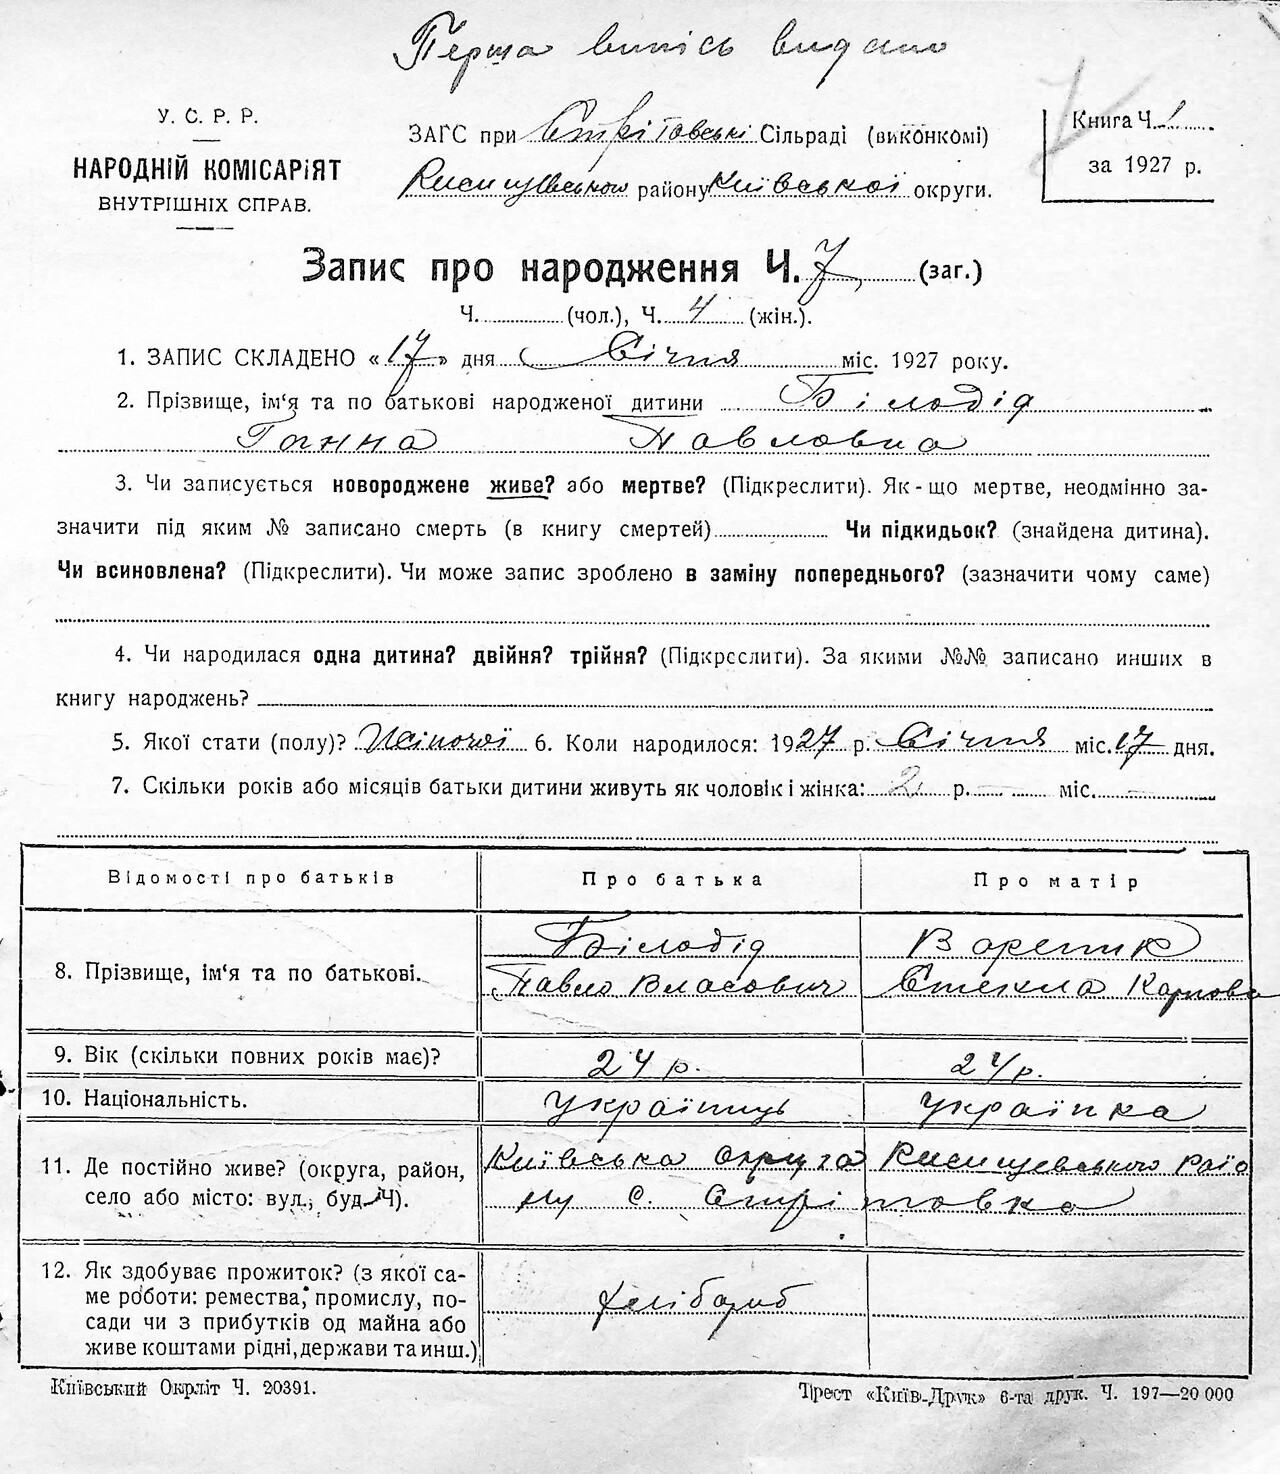 Перша випись видана
У. С. Р. Р.
НАРОДНІЙ КОМІСАРІЯТ
ВНУТРІШНІХ СПРАВ.
ЗАГС при Стрітовські Сільраді (виконкомі)
району Київської округи.
Книга Ч. 1
за 1927 р.
Запис про народження Ч. 7 (заг.)
Ч. (чол.), Ч. 4 (жін.).
1. ЗАПИС СКЛАДЕНО «17» дня Січня міс. 1927 року.
2. Прізвище, ім'я та по батькові народженої дитини Білодід
Ганна Павловна
3. Чи записується новороджене живе? або мертве? (Підкреслити). Як-що мертве, неодмінно за-
значити під яким № записано смерть (в книгу смертей) Чи підкидьок? (знайдена дитина).
Чи всиновлена? (Підкреслити). Чи може запис зроблено в заміну попереднього? (зазначити чому саме)
4. Чи народилася одна дитина? двійня? трійня? (Підкреслити). За якими №№ записано инших в
книгу народжень?
5. Якої стати (полу)? Жіночої 6. Коли народилося: 1927 р. Січня міс. 17 дня.
7. Скільки років або місяців батьки дитини живуть як чоловік і жінка: 2 р. — міс. —
Відомості про батьків
Про батька
Про матір
8. Прізвище, ім'я та по батькові.
Білодід
Павло Власович
Стекла Карпова
9. Вік (скільки повних років має)?
24 р.
24 р.
10. Національність.
Українць
Українка
11. Де постійно живе? (округа, район,
село або місто: вул., буд. Ч).
Київська округа
ну с. Стрітовка
12. Як здобуває прожиток? (з якої са-
ме роботи: ремества, промислу, по-
сади чи з прибутків од майна або
живе коштами рідні, держави та инш.)
хлібороб
Київський Окрліт Ч. 20391.
Трест «Київ-Друк» 6-та друк. Ч. 197—20 000